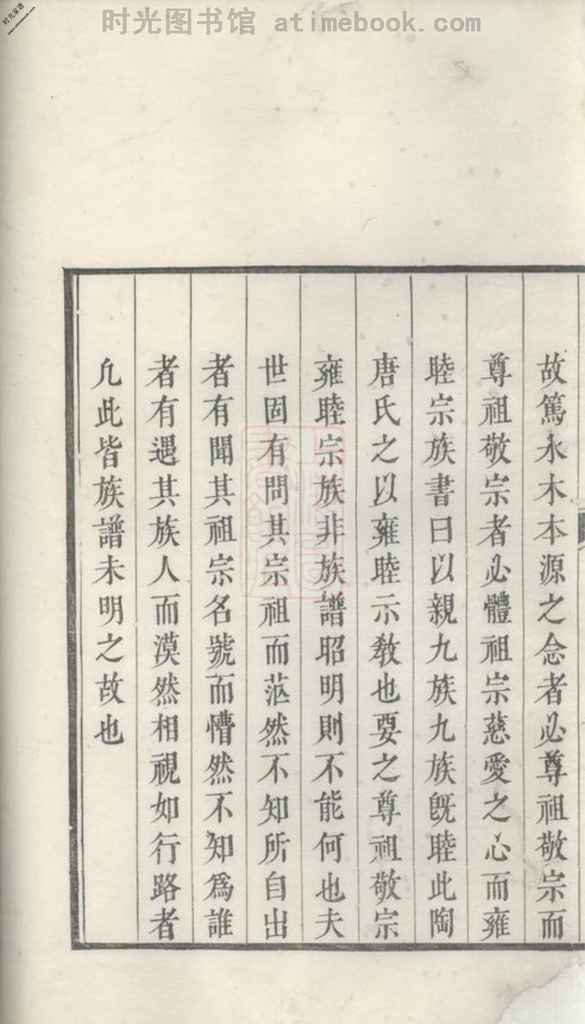 时光图书馆 atimebook.com
故篤永木本源之念者必尊祖敬宗而
尊祖敬宗者必體祖宗慈愛之心而雍
睦宗族書曰以親九族九族旣睦此陶
唐氏之以雍睦示教也要之尊祖敬宗
雍睦宗族非族譜昭明則不能何也夫
世固有問其宗祖而茫然不知所自出
者有聞其祖宗名號而懵然不知爲誰
者有遇其族人而漠然相視如行路者
凢此皆族譜未明之故也